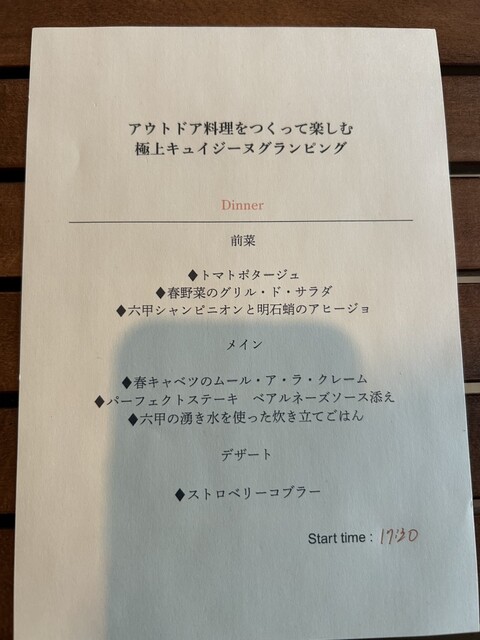 アウトドア料理をつくって楽しむ
極上キュイジーヌグランピング
Dinner
前菜
♦トマトポタージュ
♦春野菜のグリル・ド・サラダ
♦六甲シャンピニオンと明石蛸のアヒージョ
メイン
♦春キャベツのムール・ア・ラ・クレーム
♦パーフェクトステーキ　ベアルネーズソース添え
♦六甲の湧き水を使った炊き立てごはん
デザート
♦ストロベリーコブラー
Start time : 17:30